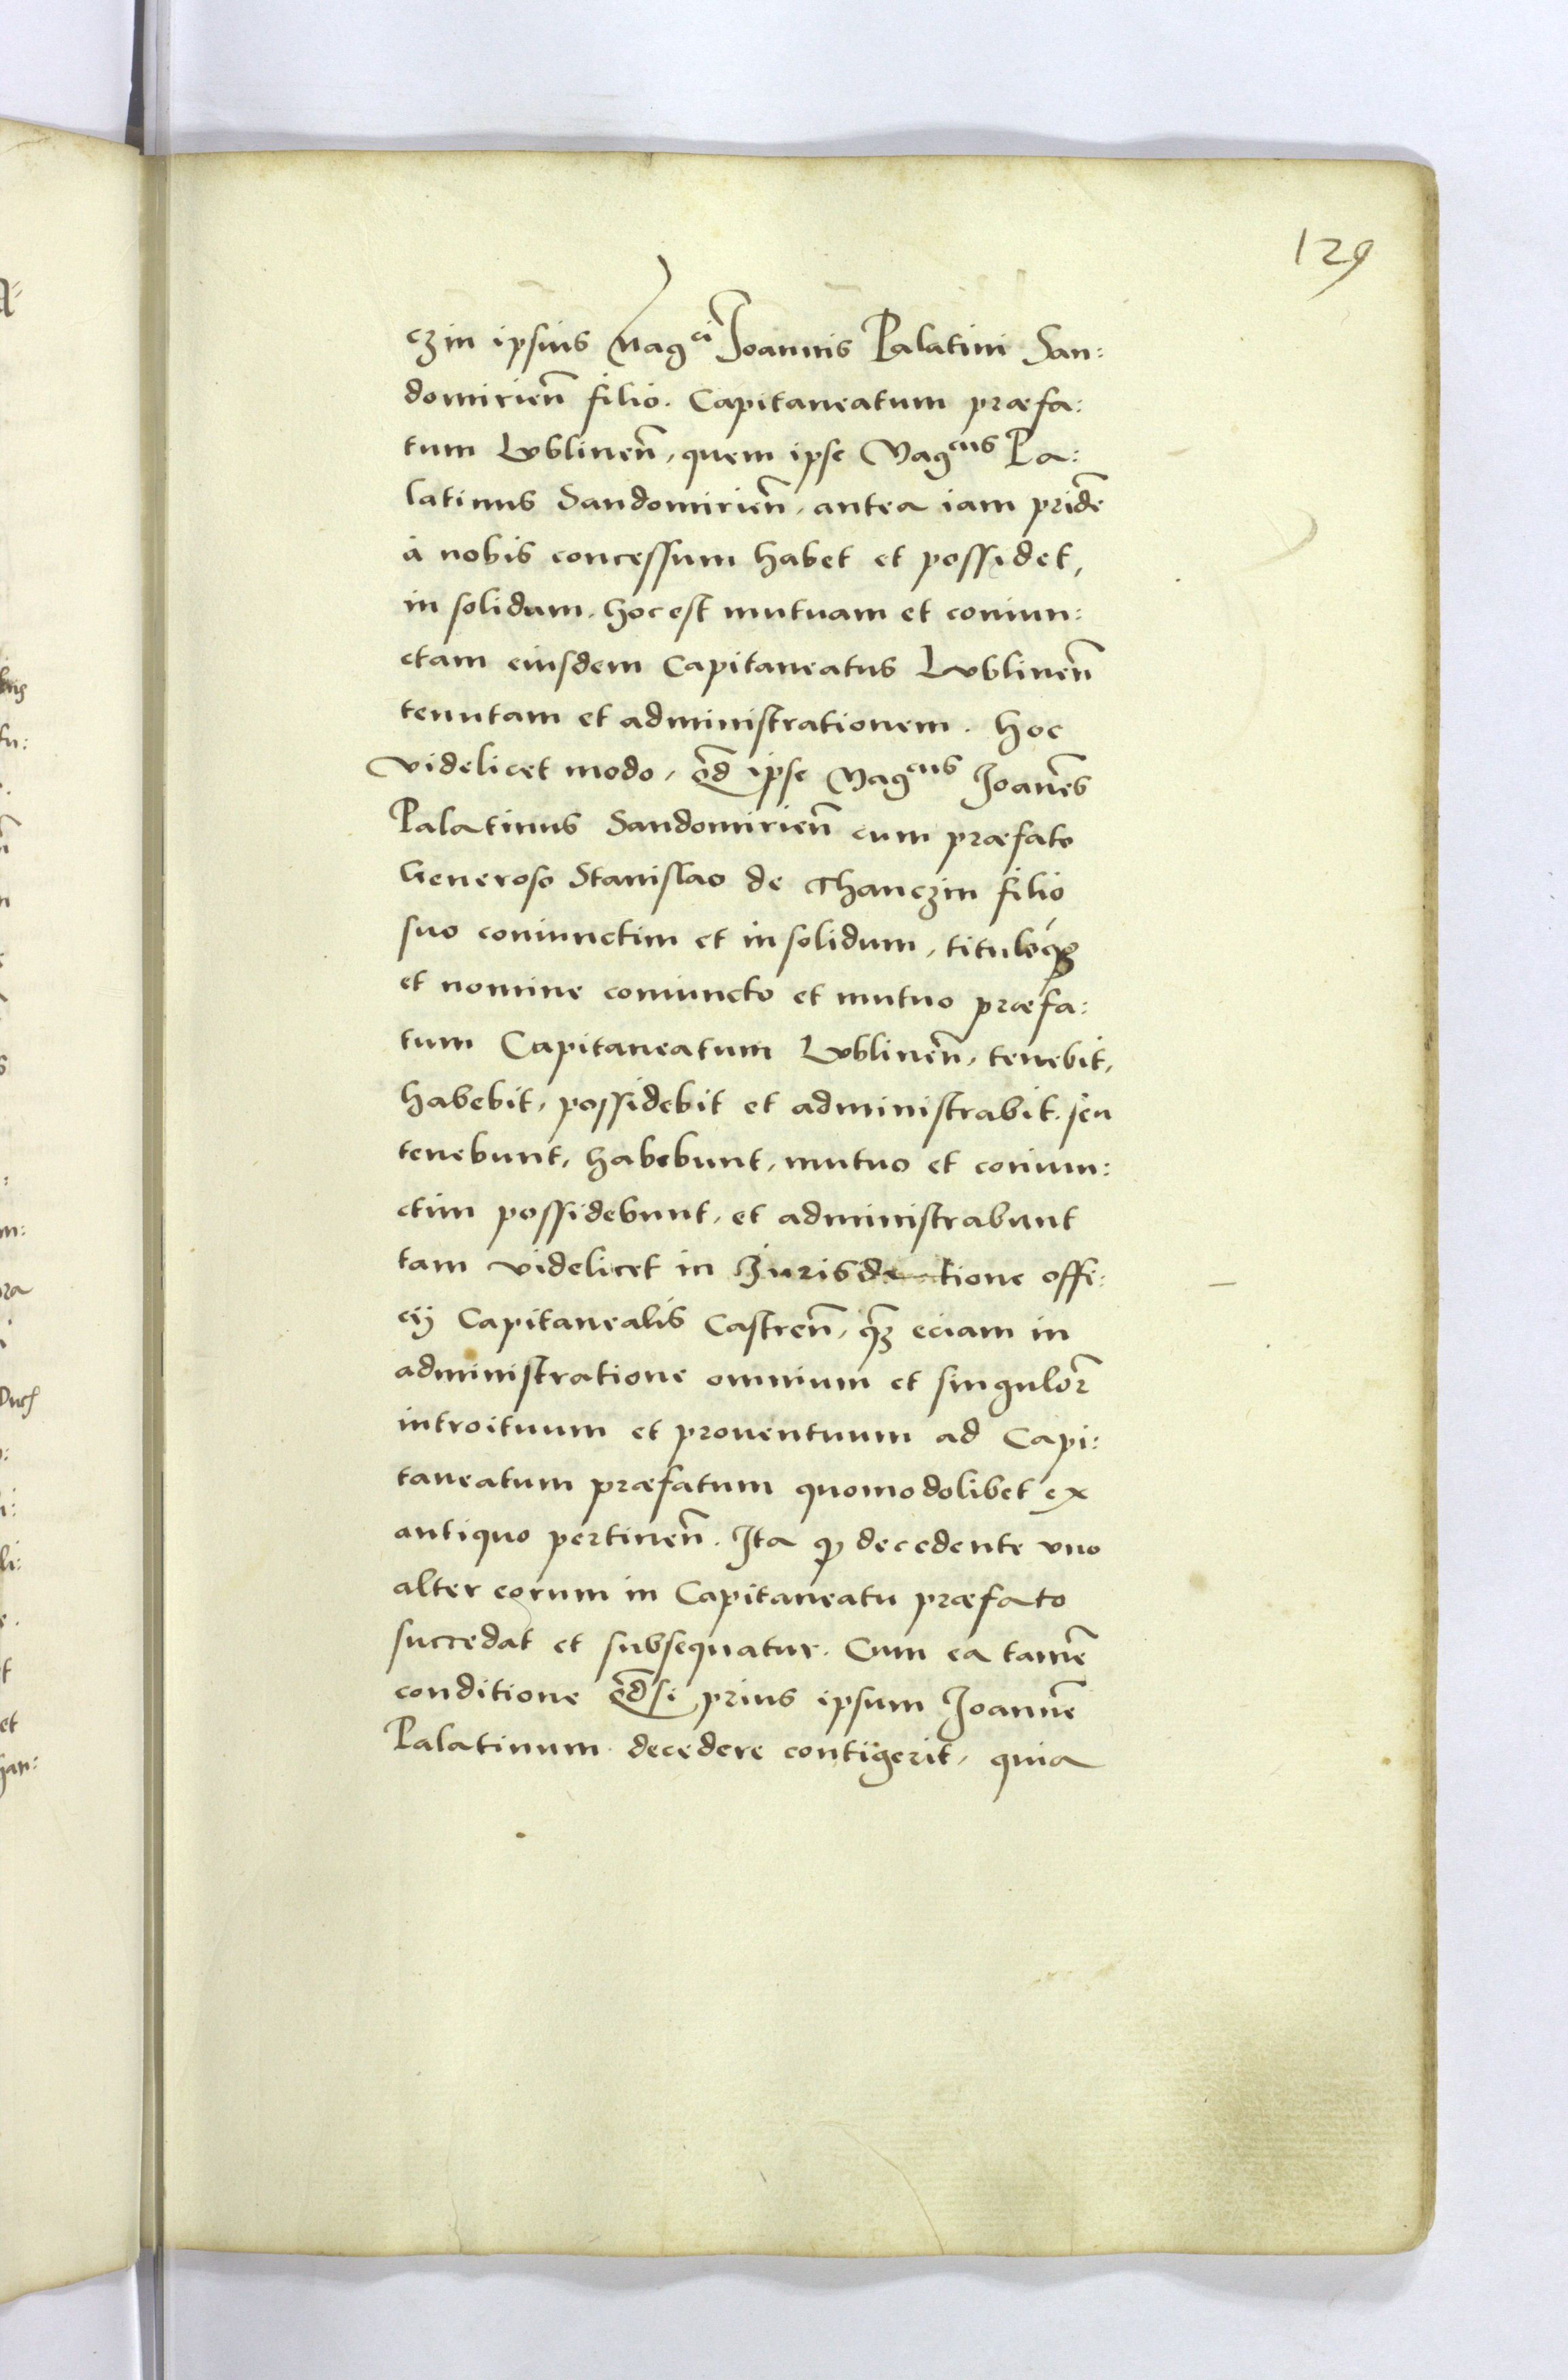 129
czin ipsius Mag^ci Joannis Palatini San:
domirieñ filio. Capitaneatum præfa:
tum Lublineñ, quem ipse Mag^cus Pa:
latinus Sandomirieñ, antea iam pridē
à nobis concessum habet et possidet,
in solidum, hoc est mutuam et coniun:
ctam eiusdem Capitaneatus Lublineñ
tenutam et administrationem. Hoc
videlicet modo, qđ ipse Mag^cus Joanēs
Palatinus Sandomirieñ cum præfato
Generoso Stanislao de Thanczin filio
suo coniunctim et in solidum, tituloqꝫ
et nomine coniuncto et mutuo præfa:
tum Capitaneatum Lublineñ, tenebit,
habebit, possidebit et administrabit. seu
tenebunt, habebunt, mutuo et coniun:
ctim possidebunt, et administrabunt
tam videlicet in offi:
cij Capitanealis Castreñ, qꝫ̃ eciam in
administratione omnium et singulor̃
introituum et prouentuum ad Capi:
taneatum præfatum quomodolibet ex
antiquo pertineñ. Ita ꝙ decedente vno
alter eorum in Capitaneatu præfato
succedat et subsequatur. Cum ea tamē
conditione qđ si prius ipsum Joannē
Palatinum decedere contigerit, quia